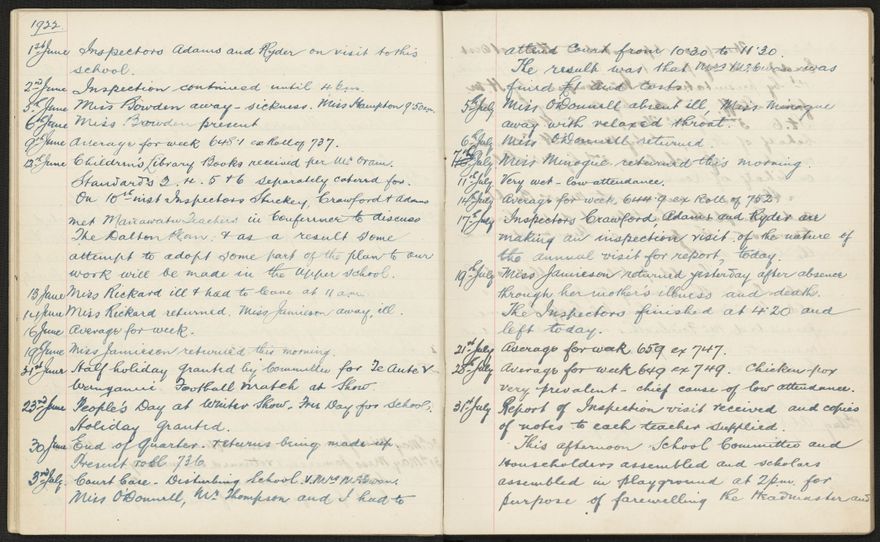 1922
1st June Inspectors Adams and Ryder on visit to this
school.
2nd June Inspection continued until 4 p.m.
5th June Miss Bowden away - sickness. Miss Hampton 9.50 a.m.
6th June Miss Bowden present
9th June Average for week 648.1 ex Roll of 737.
12th June Children's Library Books received per Mr Oram.
Standards 3. 4. 5 & 6 separately catered for.
On 10th inst Inspectors Stuckey, Crawford & Adams
met Manawatu Teachers in Conference to discuss
The Dalton Plan. & as a result some
attempt to adopt some part of the plan to our
work will be made in the Upper School.
13 June Miss Rickard ill & had to leave at 11 a.m.
14 June Miss Rickard returned. Miss Jamieson away, ill.
16 June Average for week.
19 June Miss Jamieson returned this morning.
21st June Half holiday granted by Committee for Te Aute V
Wanganui Football match at Show.
23rd June People's Day at Winter Show. Free Day for School.
Holiday granted.
30 June End of Quarter. Returns being made up
Present roll 736.
3rd July. Court Case - Disturbing School. V. Mrs
Miss O'Donnell, Mr Thompson and I had to
attend Court from 10.30 to 11.30.
The result was that Mrs was
fined £1 and costs.
5th July Miss O'Donnell absent ill, Miss Minogue
away with relaxed throat.
6th July Miss O'Donnell returned.
7th July Miss Minogue returned this morning.
11th July Very wet - low attendance.
14th July Average for week 644.9 ex Roll of 752
17th July Inspectors Crawford, Adams and Ryder are
making an inspection visit of the nature of
the annual visit for report, today.
19th July Miss Jamieson returned yesterday after absence
through her mother's illness and death.
The Inspectors finished at 4.20 and
left today.
21st July Average for week 659 ex 747.
28th July Average for week 649 ex 749. Chicken-pox
very prevalent - chief cause of low attendance.
31st July Report of Inspection visit received and copies
of notes to each teacher supplied.
This afternoon School Committee and
Householders assembled and scholars
assembled in playground at 2 p.m. for
purpose of farewelling the Headmaster and